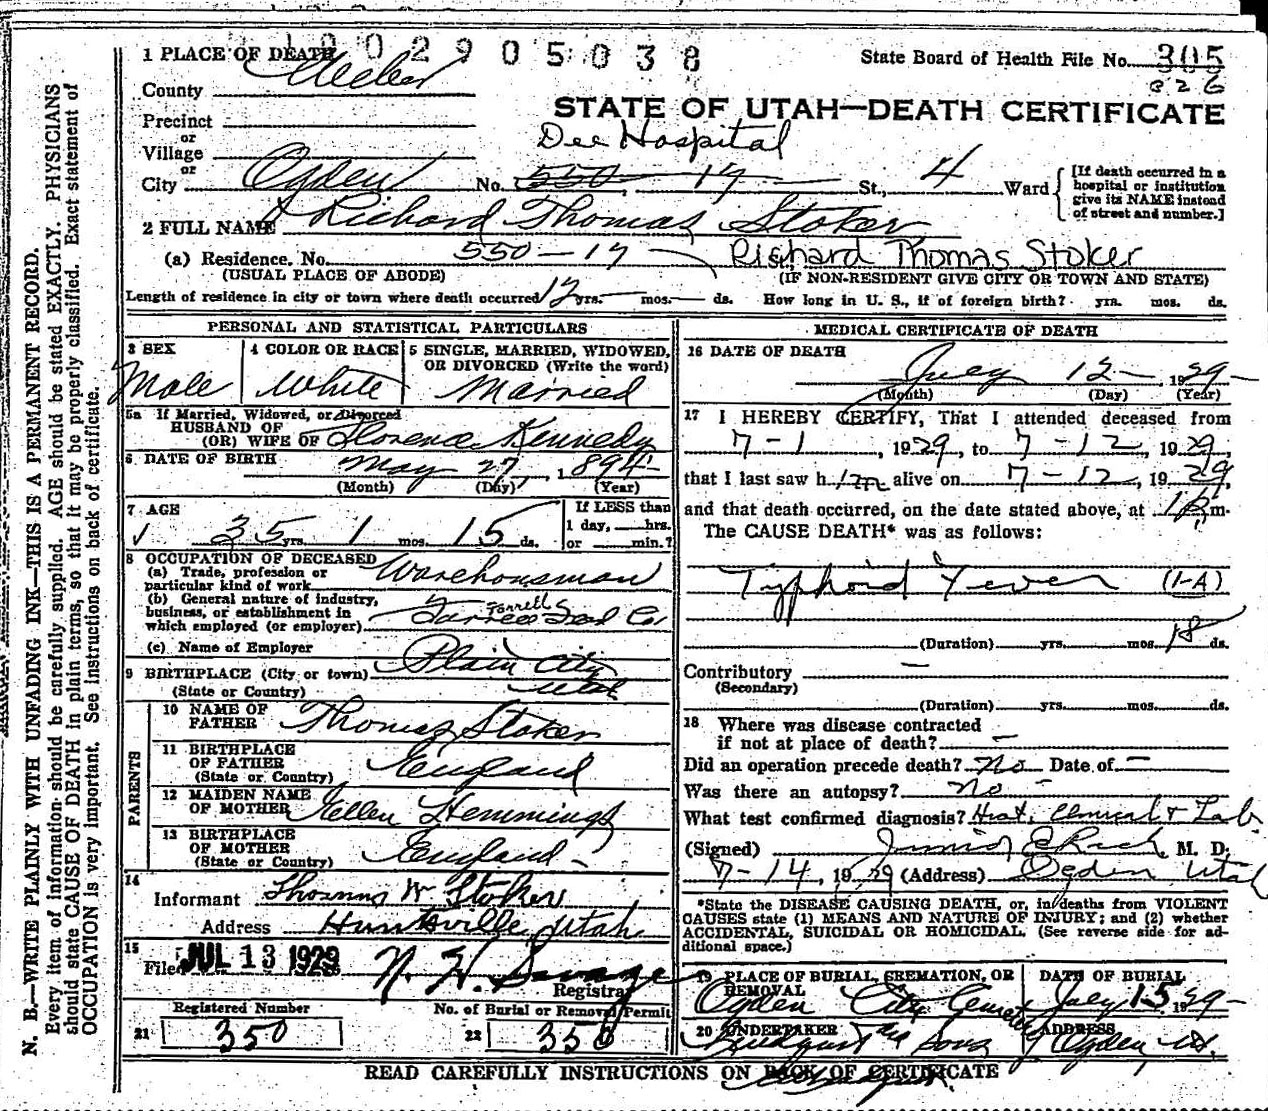 1 PLACE OF DEATH
1 0 0 2 9 0 5 0 3 8
State Board of Health File No. 305
826
County Weber
STATE OF UTAH—DEATH CERTIFICATE
Precinct
or
Village
Dee Hospital
or
City Ogden No. 550 - 17 St., 4 Ward
[If death occurred in a hospital or institution give its NAME instead of street and number.]
2 FULL NAME Richard Thomas Stoker
(a) Residence. No. 550 - 17 Richard Thomas Stoker
(USUAL PLACE OF ABODE) (IF NON-RESIDENT GIVE CITY OR TOWN AND STATE)
Length of residence in city or town where death occurred 12 yrs. — mos. — ds. How long in U. S., if of foreign birth? yrs. mos. ds.
PERSONAL AND STATISTICAL PARTICULARS
3 SEX
Male
4 COLOR OR RACE
White
5 SINGLE, MARRIED, WIDOWED, OR DIVORCED (Write the word)
Married
5a If Married, Widowed, or Divorced
HUSBAND OF
(OR) WIFE OF Florence Kennedy
6 DATE OF BIRTH May 27, 1894
(Month) (Day) (Year)
7 AGE
35 yrs. 1 mos. 15 ds.
If LESS than
1 day, hrs.
or min.?
8 OCCUPATION OF DECEASED
(a) Trade, profession or
particular kind of work Warehousman
(b) General nature of industry,
business, or establishment in
which employed (or employer) Farrell
Co.
(c) Name of Employer
9 BIRTHPLACE (City or town) Plain City
(State or Country) Utah
PARENTS
10 NAME OF
FATHER Thomas Stoker
11 BIRTHPLACE
OF FATHER England
(State or Country)
12 MAIDEN NAME
OF MOTHER Hemmings
13 BIRTHPLACE
OF MOTHER England
(State or Country)
14
Informant Thomas W Stoker
Address Huntsville, Utah
15
Filed JUL 13 1929 N. H. Savage
Registrar
Registered Number
21 350
No. of Burial or Removal Permit
22 350
MEDICAL CERTIFICATE OF DEATH
16 DATE OF DEATH
July 12 — , 1929 —
(Month) (Day) (Year)
17 I HEREBY CERTIFY, That I attended deceased from
7 - 1 , 1929, to 7 - 12 , 1929,
that I last saw him alive on 7 - 12 , 1929,
and that death occurred, on the date stated above, at m.
The CAUSE DEATH* was as follows:
Typhoid Fever (1-A)
(Duration) yrs. mos. 18 ds.
Contributory —
(Secondary)
(Duration) yrs. mos. ds.
18 Where was disease contracted
if not at place of death? —
Did an operation precede death? No Date of —
Was there an autopsy? no -
What test confirmed diagnosis? Hist. Clinical & Lab.
(Signed) Junior E Rich, M. D.
7 - 14, 1929 (Address) Ogden Utah
*State the DISEASE CAUSING DEATH, or, in deaths from VIOLENT
CAUSES state (1) MEANS AND NATURE OF INJURY; and (2) whether
ACCIDENTAL, SUICIDAL OR HOMICIDAL. (See reverse side for ad-
ditional space.)
19 PLACE OF BURIAL, CREMATION, OR REMOVAL
Ogden City Cemetery
DATE OF BURIAL
July 15 1929 —
20 UNDERTAKER
Sons
ADDRESS
Ogden, Ut.
READ CAREFULLY INSTRUCTIONS ON BACK OF CERTIFICATE
N. B.—WRITE PLAINLY WITH UNFADING INK—THIS IS A PERMANENT RECORD.
Every item of information should be carefully supplied. AGE should be stated EXACTLY. PHYSICIANS
should state CAUSE OF DEATH in plain terms, so that it may be properly classified. Exact statement of
OCCUPATION is very important. See instructions on back of certificate.